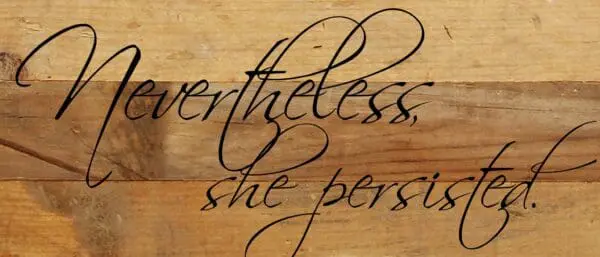 Nevertheless,
she persisted.